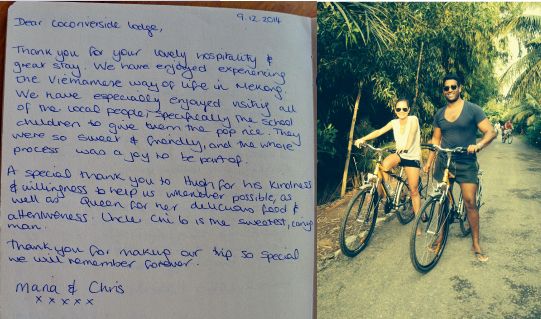 9.12.2014
Dear Coconriverside lodge,
Thank you for your lovely hospitality &
great stay. We have enjoyed experiencing
the Vietnamese way of life in Mekong.
We have especially enjoyed visiting all
of the local people, specifically the school
children to give them the pop rice. They
were so sweet & friendly, and the whole
process was a joy to be part of.
A special thank you to Hugh for his kindness
& willingness to help us whenever possible, as
well as Queen for her delicious food &
attentiveness. Uncle Chi lo is the sweetest, caring
man.
Thank you for making our trip so special
we will remember forever.
Mana & Chris
x x x x x